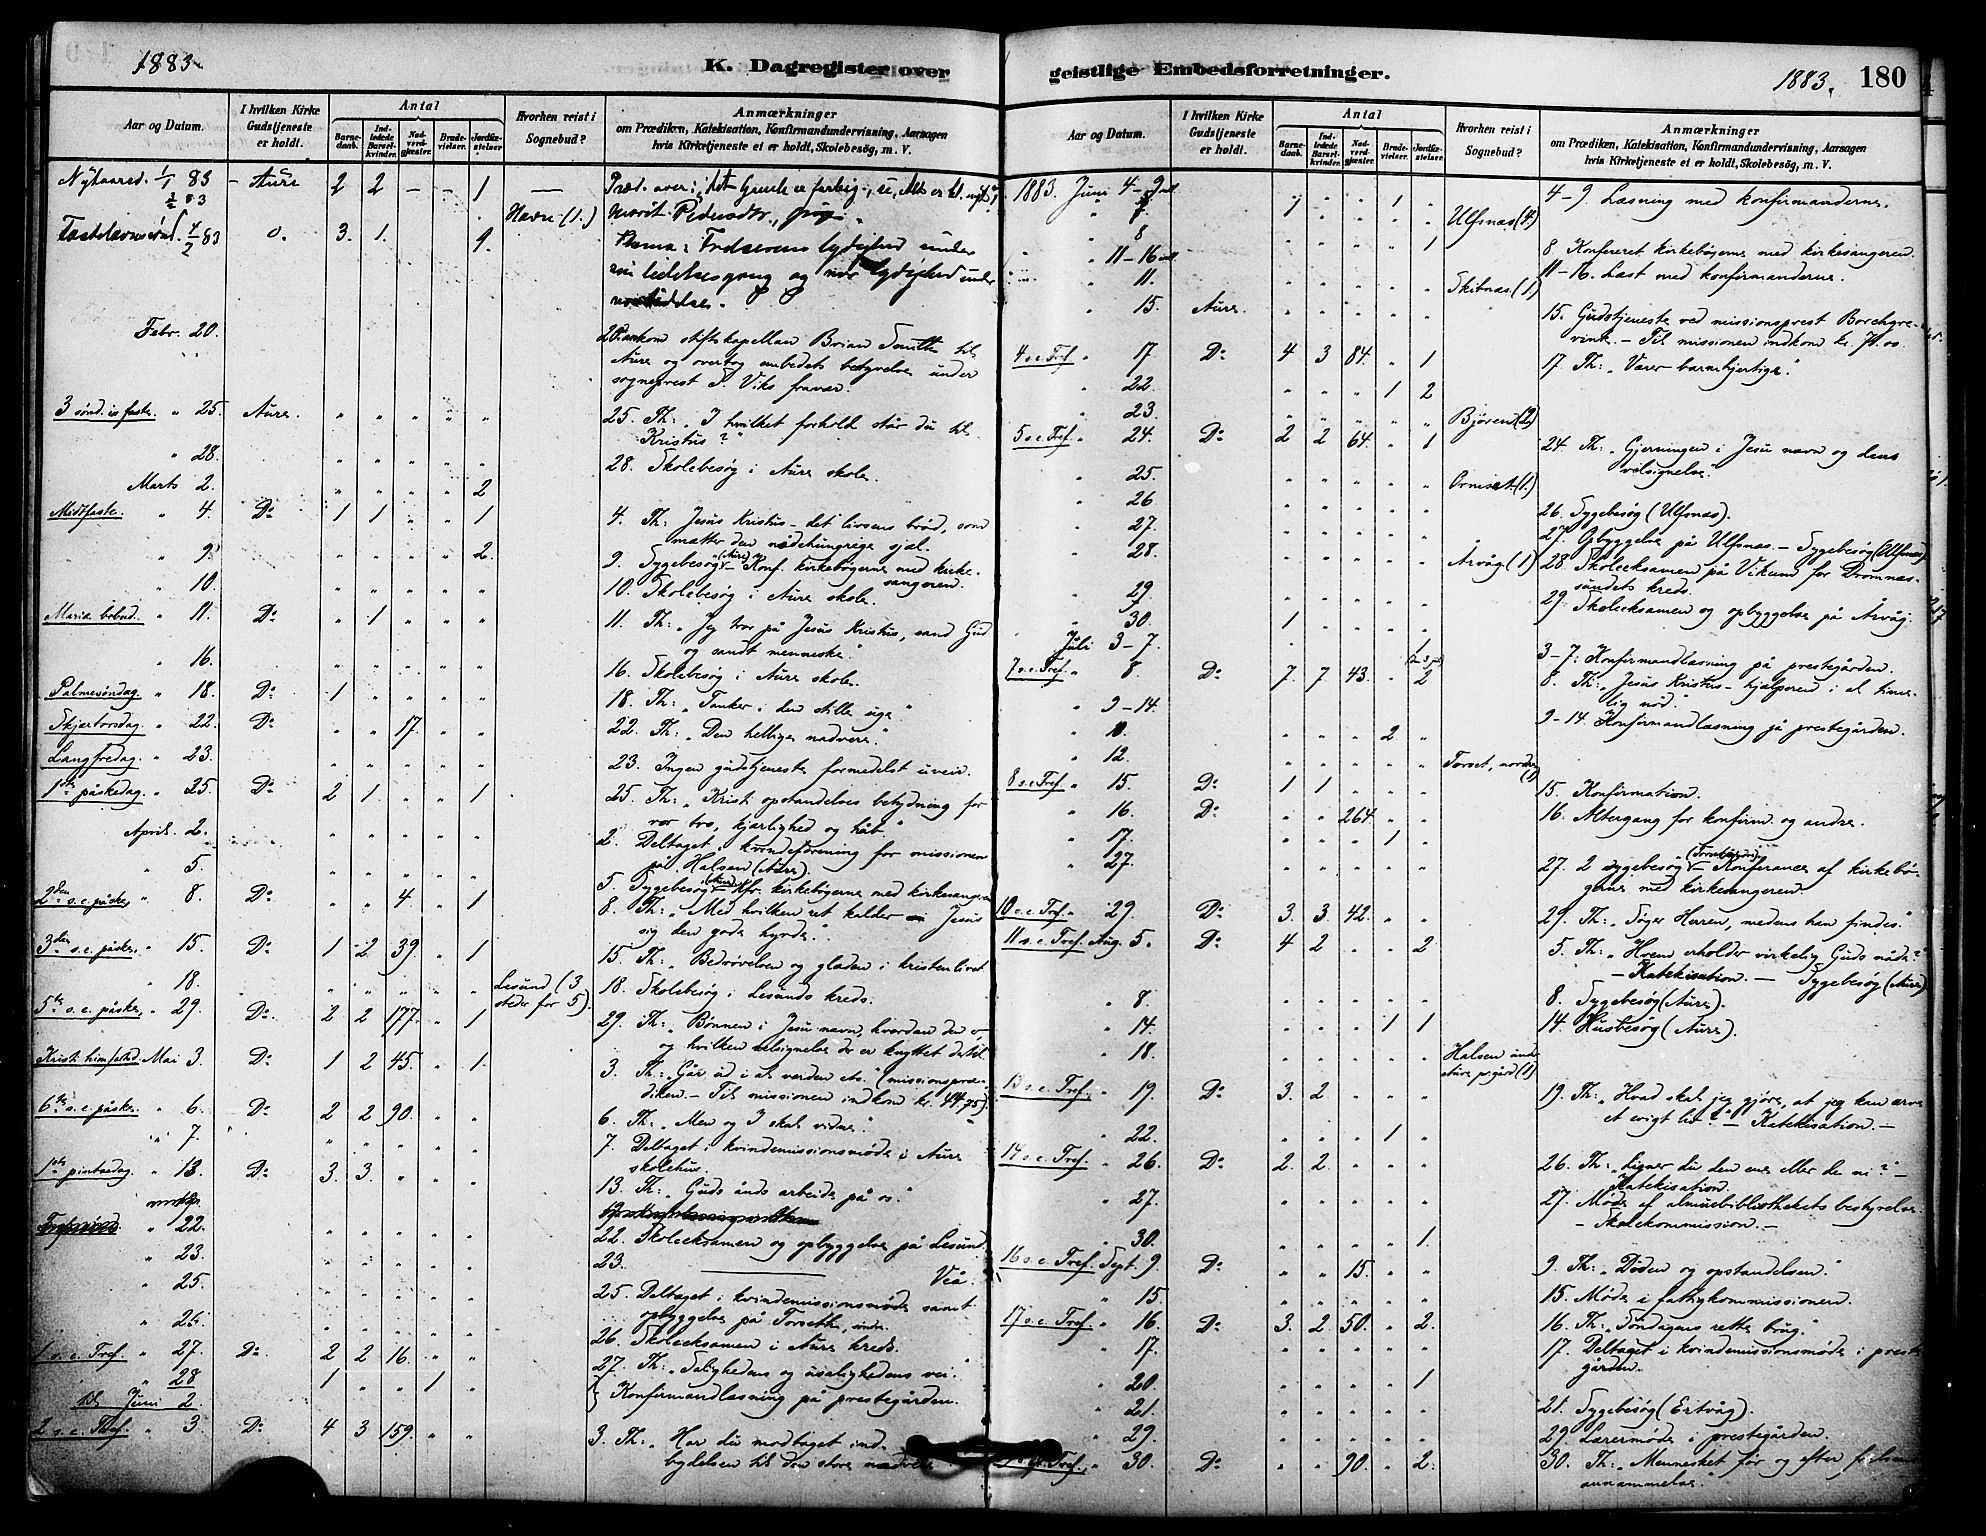 1883
K. Dagregister over
Aar og Datum.
I hvilken Kirke Gudstjeneste er holdt.
Antal
Barnedaab.
Indledede Barselkvinder.
Nadverdgjæster.
Brudevielser.
Jordfæstelser.
Hvorhen reist i Sognebud?
Anmærkninger
om Prædiken, Katekisation, Konfirmandundervisning, Aarsagen
hvis Kirketjeneste ei er holdt, Skolebesög, m. V.
Nytaarsd. 1/1 83 - Aure 2 2 - - 1 — Præd. over: det Gamle er forbig.
2/2 83 Havn (1.) Marit Pedersdtr.
Fastelavnssönd. 4/2 83 o. 3. 1. 1. Frelserens lydighed under
sin lidelsesgang og vor lydighed under
vor lidelse.
Febr. 20. 20. Ankom stiftskapellan Brian Smith til
Aure og overtog embedets bestyrelse under
sogneprest S. Viks fravær.
3 sönd. i faste. " 25. Aure. " " " " " 25. Th: "I hvilket forhold står du til
Kristus?"
" 28. " " " " " 28. Skolebesög i Aure skole.
Marts 2. " " " " 2
Midtfaste. " 4. Do 1 1 " " 1 4. Th: Jesus Kristus - det livsens bröd, som
mætter den nådehungrige sjæl.
" 9. " " " " 2. 9. Sygebesög (Aure) - Konf. kirkebögerne med kirke-
sangeren.
" 10. " " " " " 10. Skolebesög i Aure skole.
Mariæ bebud. " 11. Do " 1 " " " 11. Th: "Jeg tror på Jesus Kristus, sand Gud
og sandt menneske."
" 16. " " " " " 16. Skolebesög i Aure skole.
Palmesöndag. " 18. Do 1 " " " " 18. Th: "Tanker i den stille uge"
Skjærtorsdag. " 22. Do " " 17. " " 22. Th: "Den hellige nadvere."
Langfredag. " 23. " " " " " 23. Ingen gudstjeneste formedelst uveir.
1ste påskedag. " 25. Do 2 1. " " 1 25. Th: "Kristi opstandelses betydning for
vor tro, kjærlighed og håb."
April. 2. " " " " " 2. Deltaget i kvindeforening for missionen
på Halsen (Aure).
" 5. " " " " " 5. Sygebesög (Aure) - Kfr. kirkebögerne med kirkesangeren
2den s. e. påske, " 8. Do " " 4 " 1 8. Th: "Med hvilken ret kalder Jesus
sig den gode hyrde."
3die s. e. påske, " 15. Do 1 2 39. " 1 15. Th: "Bedrövelsen og glæden i kristenlivet
" 18. " " " " " Lesund (3 18. Skolebesög i Lesunds kreds.
steder for 5).
5te s. e. påske, " 29. Do. 2 2 177. " 1 29. Th: "Bönnen i Jesu navn, hvordan den
og hvilken velsignelse der er knyttet dertil
Kristi himfartsd. Mai 3. Do. 1 2 45. " 1. 3. Th: "Går ud i al verden etc." (missionspræ-
diken. - Til missionen indkom kr. 44.75).
6te s. e. påske. " 6. Do 2 2 90. " " 6. Th: "Men og I skal vidne."
" 7. " " " " " 7. Deltaget i kvindemissionsmöde i Aure
skolehus.
1ste pintsedag. " 13. Do. 3. 3. " " " 13. Th: "Guds ånds arbeide på os."
" 22. " " " " " 22. Skoleeksamen og opbyggelse på Lesund.
" 23 " " " " " 23. — Veå.
" 25. " " " " " 25. Deltaget i kvindemissionsmöde samt
opbyggelse på Torseth,
" 26. " " " " " 26. Skoleeksamen i Aure kreds.
1 s. e. Tref. " 27. Do. 2 2 16. " " 27. Th: "Salighedens og usalighedens vei."
" 28 1 " " 1 " Konfirmandlæsning på prestegården.
til Juni 2
2 s. e. Tref. " 3. Do. 4 3 159. " " 3. Th: "Har du modtaget ind-
bydelsen til den store nadvere
geistlige Embedsforretninger.
1883.
180
Aar og Datum.
I hvilken Kirke Gudstjeneste er holdt.
Antal
Barnedaab.
Indledede Barselkvinder.
Nadverdgjæster.
Brudevielser.
Jordfæstelser.
Hvorhen reist i Sognebud?
Anmærkninger
om Prædiken, Katekisation, Konfirmandundervisning, Aarsagen
hvis Kirketjeneste ei er holdt, Skolebesög, m. V.
1883. Juni 4-9 1 " 4-9. Læsning med konfirmanderne.
1 " " " " Ulfsnæs (4.)
" 8 " " " " 1 8. Konfereret kirkebögerne med kirkesangeren.
" 11-16 " " " " " 11-16. Læst med konfirmanderne.
" 11. " " " " " Skibnæs (1.)
" 15. Aure. " " " " " 15. Gudstjeneste ved missionsprest Borchgre-
vink. - Til missionen indkom kr.
4 s. e. Tref. " 17 Do 4 3 84. " 1 17. Th: "Værer barmhjertige."
" 22. " " " 1 2
" 23. " " " " " Björen (2)
5 s. e. Tref. " 24. Do 2 2 64. " 1 24. Th: "Gjerningen i Jesu navn og dens
velsignelse."
" 25. " " " " " Ormset (1.)
" 26 " " " " " 26. Sygebesög (Ulfsnæs).
" 27. " " " " " 27. Opbyggelse på Ulfsnæs. - Sygebesög (Ulfsnæs)
" 28. " " " " " Årvåg (1) 28. Skoleeksamen på Vikund for Dromnæs-
sundets kreds.
" 29. " " " " " 29. Skoleeksamen og opbyggelse på Årvåg.
" 30. 1 " " " "
Juli 3-7. " " " " 3-7. Konfirmandlæsning på prestegården.
7 s. e. Tref. " 8. Do 7. 7 43. " 2 8. Th: "Jesus Kristus - hjælperen i al time-
lig nöd."
" 9-14. " " " " " 9-14. Konfirmandlæsning på prestegården.
" 10. " " " 2 "
" 12. " " " " " Torset, nordre (1)
8 s. e. Tref. " 15. Do 1 1 " " " 15. Konfirmation.
" 16. Do " " 264. " " 16. Altergang for konfirm. og andre.
" 17. " " " 1 "
" 27. " " " " " 27. 2 sygebesög - Konferance af kirkebö-
gerne med kirkesangeren.
10 s. e. Tref. " 29. Do 3. 3 42. " " 29. Th: "Söger Herren, medens han findes."
11 s. e. Tref. Aug. 5. Do 4 2 " " 2 5. Th: "Hvem erholder virkelig Guds nåde?"
- Katekisation. - Sygebesög (Aure)
" 8. " " " " " 8. Sygebesög (Aure).
" 14. " " " 1 1 14. Husbesög (Aure).
" 18. " " " " " Halsen under
Aure pgård (1)
13 s. e. Tref. " 19. Do 3. 2 " " " 19. Th: "Hvad skal jeg gjöre, at jeg kan arve
et evigt liv?" - Katekisation. -
" 22. " " " 1 "
14 s. e. Tref. " 26. Do 2. 2. " " " 26. Th: "Ligner du den ene eller de ni?" -
Katekisation.
" 27. " " " " " 27. Möde af almuebibliothekets bestyrelse.
- Skolekommission. -
" 30. " " " " 1.
16 s. e. Tref. Sept. 9 Do " " 15. " " 9. Th: "Döden og opstandelsen."
" 15 " " " " " 15. Möde i fattigkommissionen.
17 s. e. Tref. " 16. Do 3. 2 50. " 2. 16. Th: "Söndagens rette brug."
" 17. " " " " " 17. Deltaget i kvindemissionsmöde i preste-
gården.
" 20. " " " " 1
" 21. " " " " " 21. Sygebesög (Ertvåg).
" 29. " " " " " 29. Lærermöde i prestegården.
Tref. " 30. Do " " 90. " 2. 30. Th: "Mennesket för og efter frelsens
annammelse."